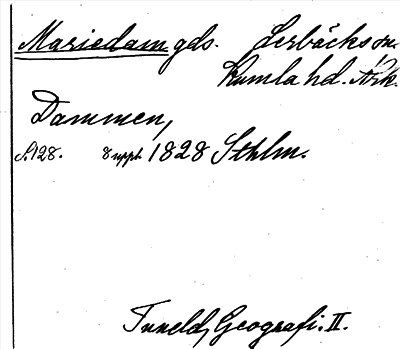 Mariedam gds. Lerbäcks sn.
Kumla hd. Örk.
Dammen,
S. 128. 8 uppl. 1828 Sthlm.
Tuneld, Geografi. II.